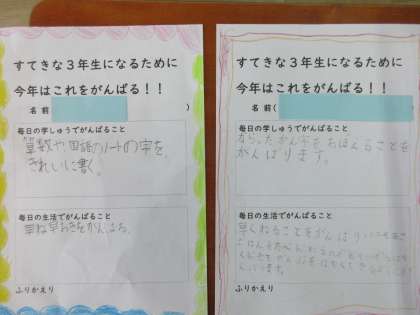 すてきな３年生になるために
今年はこれをがんばる！！
名前( )
毎日の学しゅうでがんばること
算数や国語のノートの字を
きれいに書く。
毎日の生活でがんばること
早ね早おきをがんばる。
ふりかえり
すてきな３年生になるために
今年はこれをがんばる！！
名前(
毎日の学しゅうでがんばること
ならったかん字をおぼえることを
がんばります。
毎日の生活でがんばること
早くねることをがんばり
ふりかえり